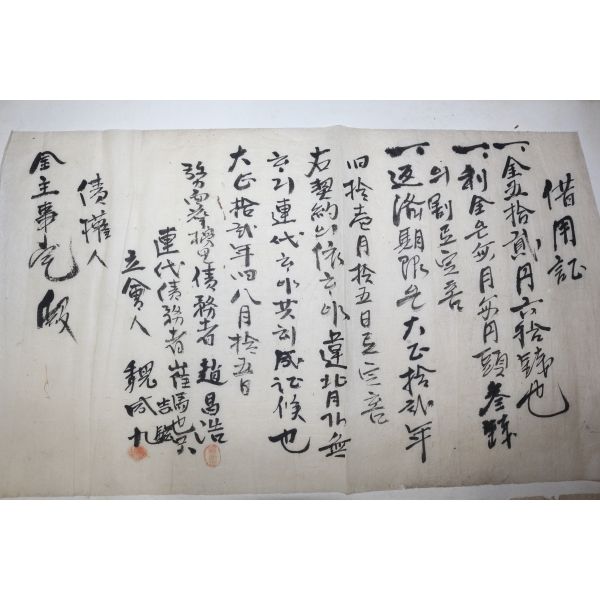 借用証
一、金五拾貳円六拾錢也
一、利金은每月每円頭參錢
의割로定홈
一、返濟期限은大正拾貳年
旧拾壹月拾五日로定홈
右契約에依하야違背가無
하기連代하야共히成証候也
大正拾貳年旧八月拾五日
債務者 趙昌浩
連代債務者 崔
立會人 魏成九
債權人
金主事宅 殿